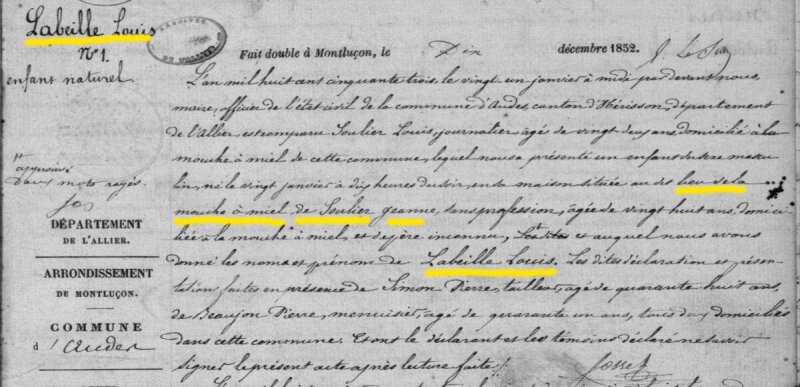 Labeille Louis
N° 1.
enfant naturel.
Fait double à Montluçon, le Dix décembre 1852.
L'an mil huit cent cinquante trois, le vingt un janvier à midi par devant nous
maire, officier de l'état civil de la commune d'Audes, canton d'Hérisson, département
de l'Allier, est comparu Soulier Louis, journalier, agé de vingt deux ans, domicilié à la
mouche à miel de cette commune, lequel nous a présenté un enfant du sexe mascu
lin, né le vingt janvier à dix heures du soir, en sa maison située au dit lieu de la
mouche à miel, de Soulier Jeanne, sans profession, agée de vingt huit ans, domici
liée à la mouche à miel, et de père inconnu, et auquel nous avons
donné les noms et prénom de Labeille Louis. Les dites déclaration et présen
tation faites en présence de Simon Pierre, tailleur, agé de quarante huit ans,
de Beaujon Pierre, menuisier, agé de quarante un ans, tous deux domiciliés
dans cette commune. Et ont le déclarant et les témoins déclaré ne savoir
signer le présent acte après lecture faite.
approuvé
deux mots rayés.
DÉPARTEMENT
DE L'ALLIER.
ARRONDISSEMENT
DE MONTLUÇON.
COMMUNE
d'Audes